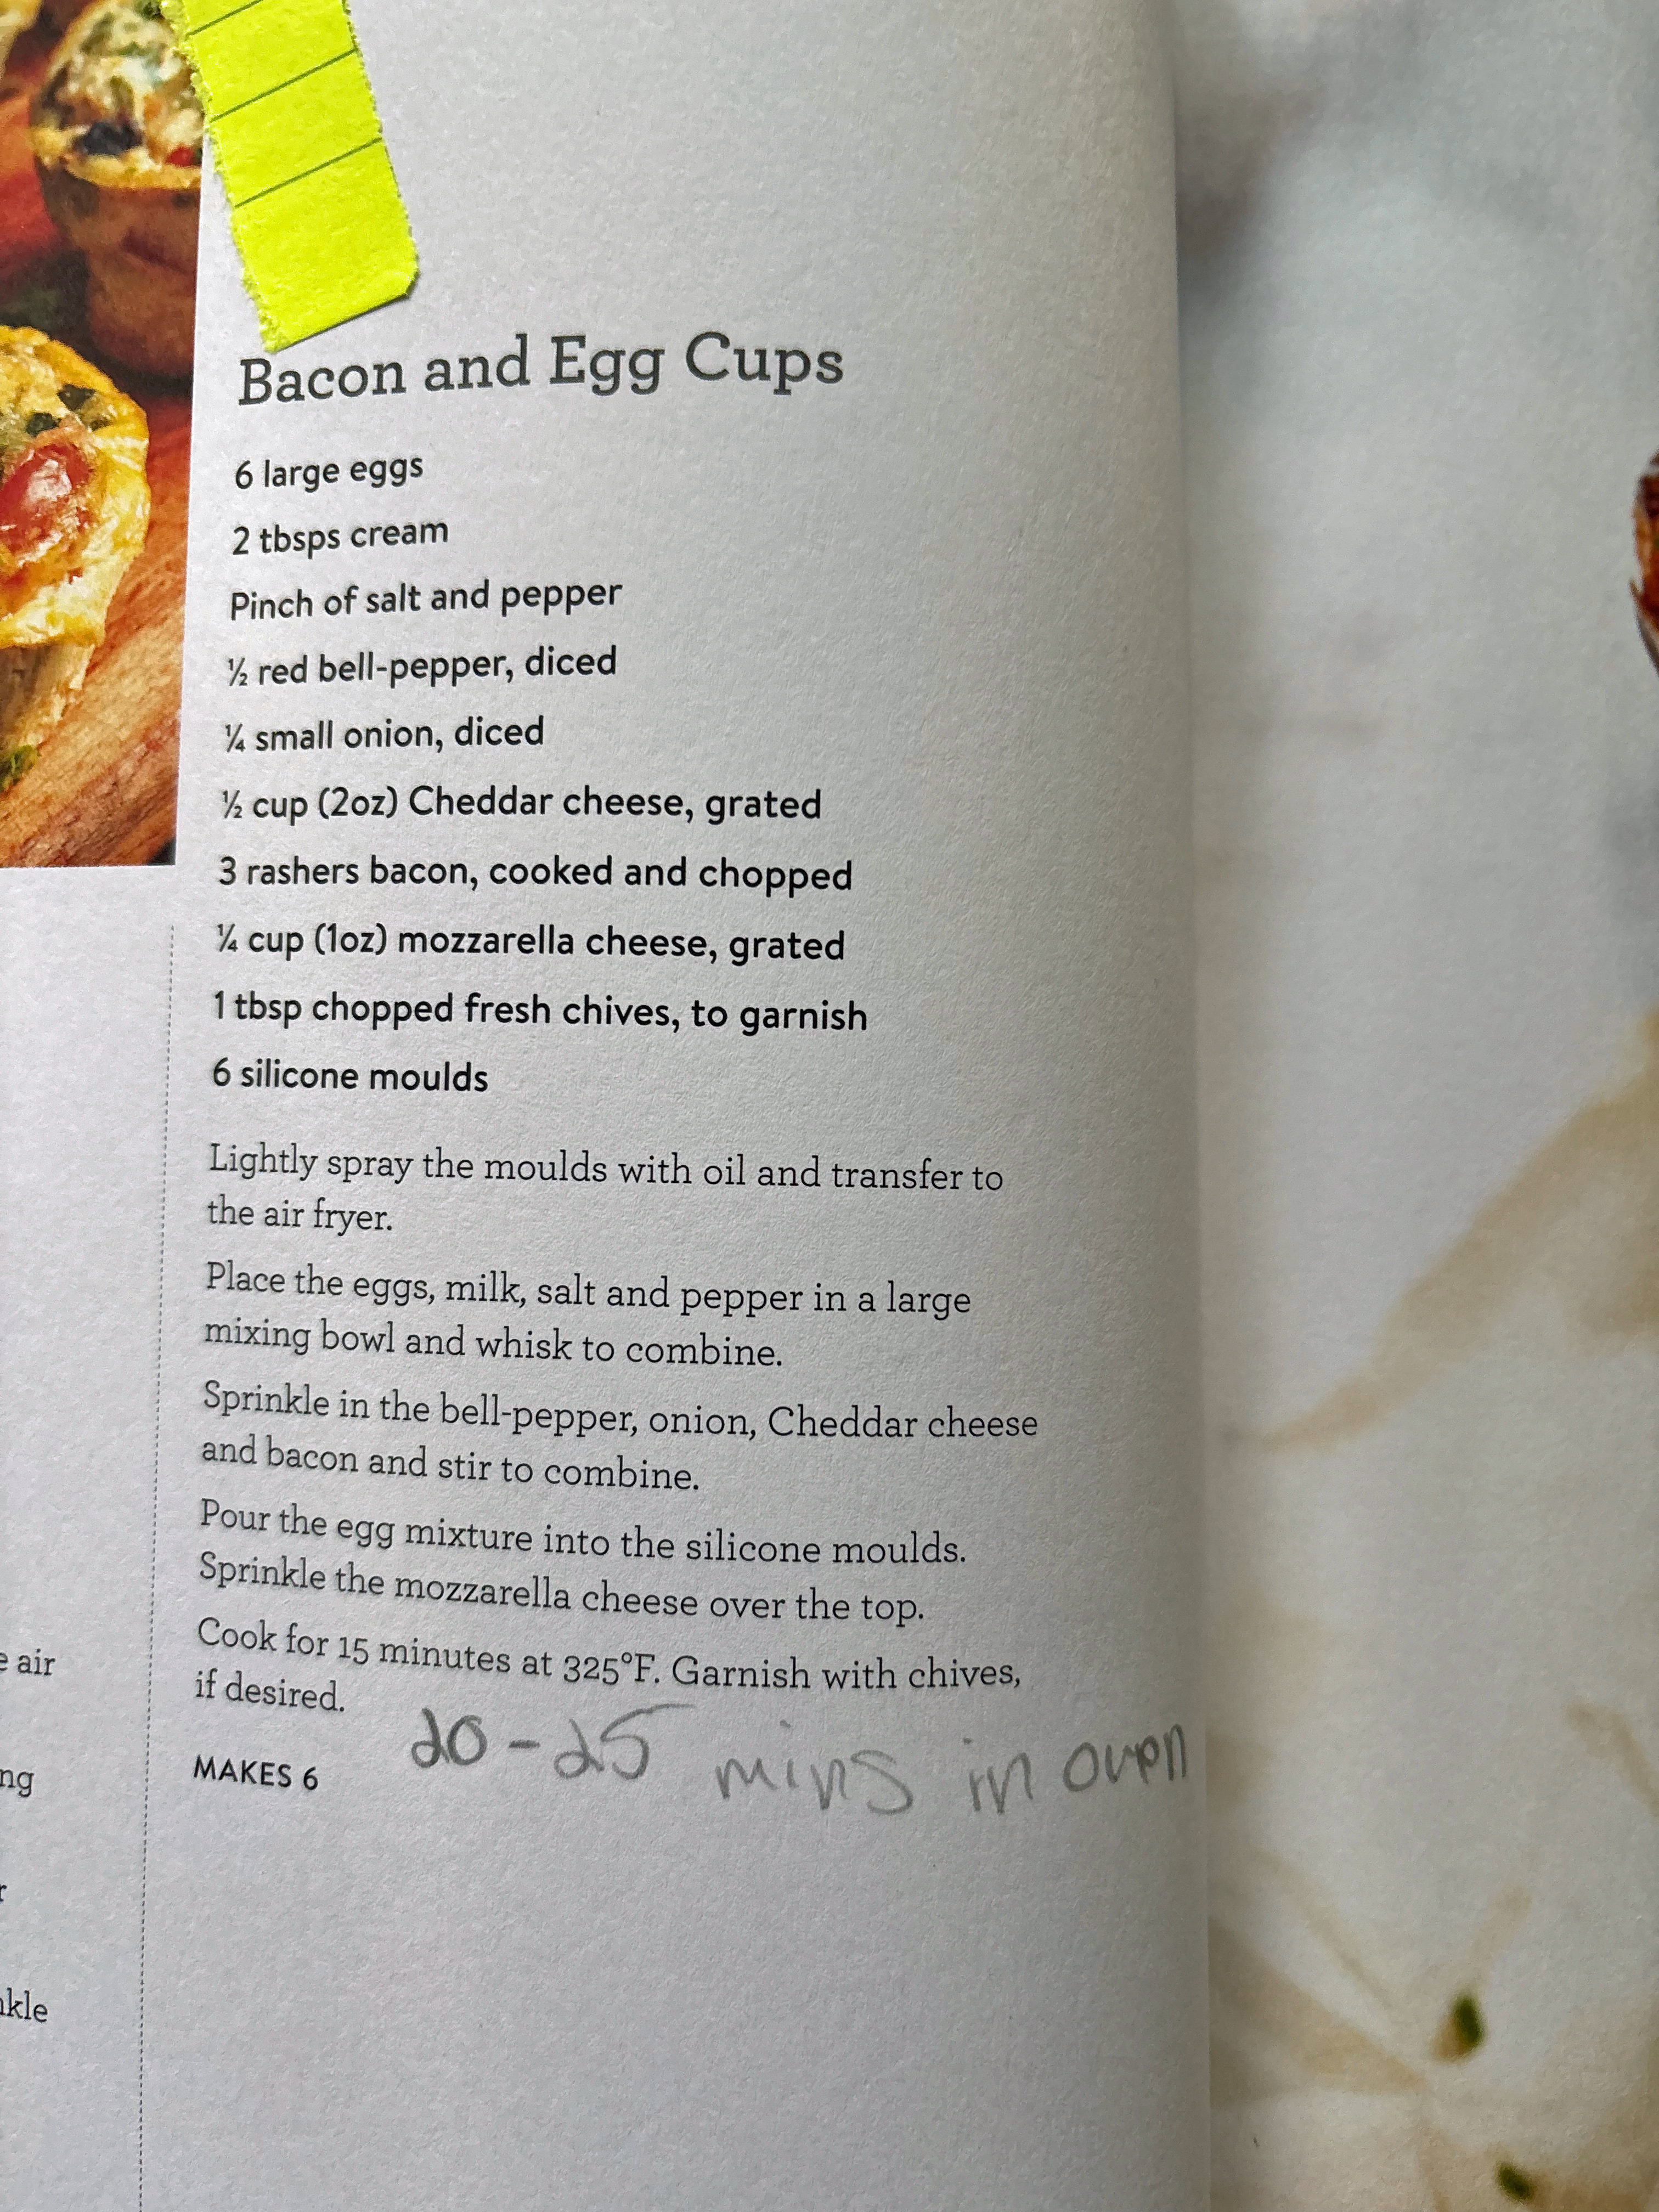 Bacon and Egg Cups
6 large eggs
2 tbsps cream
Pinch of salt and pepper
½ red bell-pepper, diced
¼ small onion, diced
½ cup (2oz) Cheddar cheese, grated
3 rashers bacon, cooked and chopped
¼ cup (1oz) mozzarella cheese, grated
1 tbsp chopped fresh chives, to garnish
6 silicone moulds
Lightly spray the moulds with oil and transfer to
the air fryer.
Place the eggs, milk, salt and pepper in a large
mixing bowl and whisk to combine.
Sprinkle in the bell-pepper, onion, Cheddar cheese
and bacon and stir to combine.
Pour the egg mixture into the silicone moulds.
Sprinkle the mozzarella cheese over the top.
Cook for 15 minutes at 325°F. Garnish with chives,
if desired.
20-25 mins in oven
MAKES 6
air